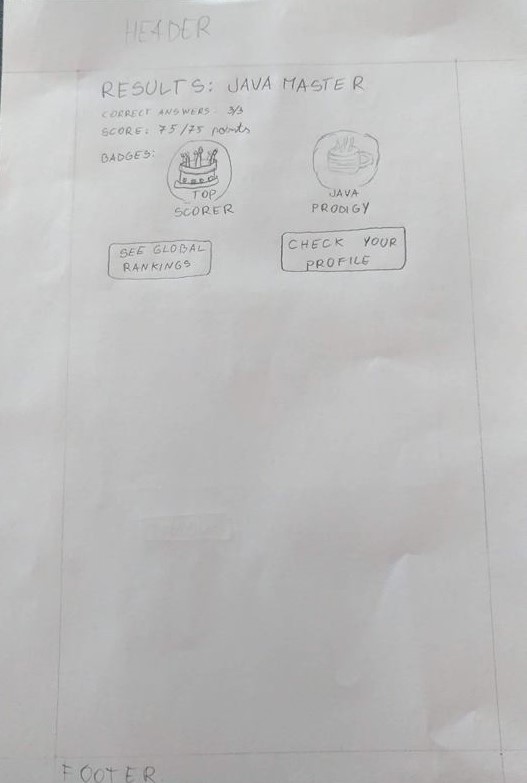 HEADER
RESULTS: JAVA MASTER
CORRECT ANSWERS: 3/3
SCORE: 75/75 points
BADGES:
TOP
SCORER
JAVA
PRODIGY
SEE GLOBAL
RANKINGS
CHECK YOUR
PROFILE
FOOTER